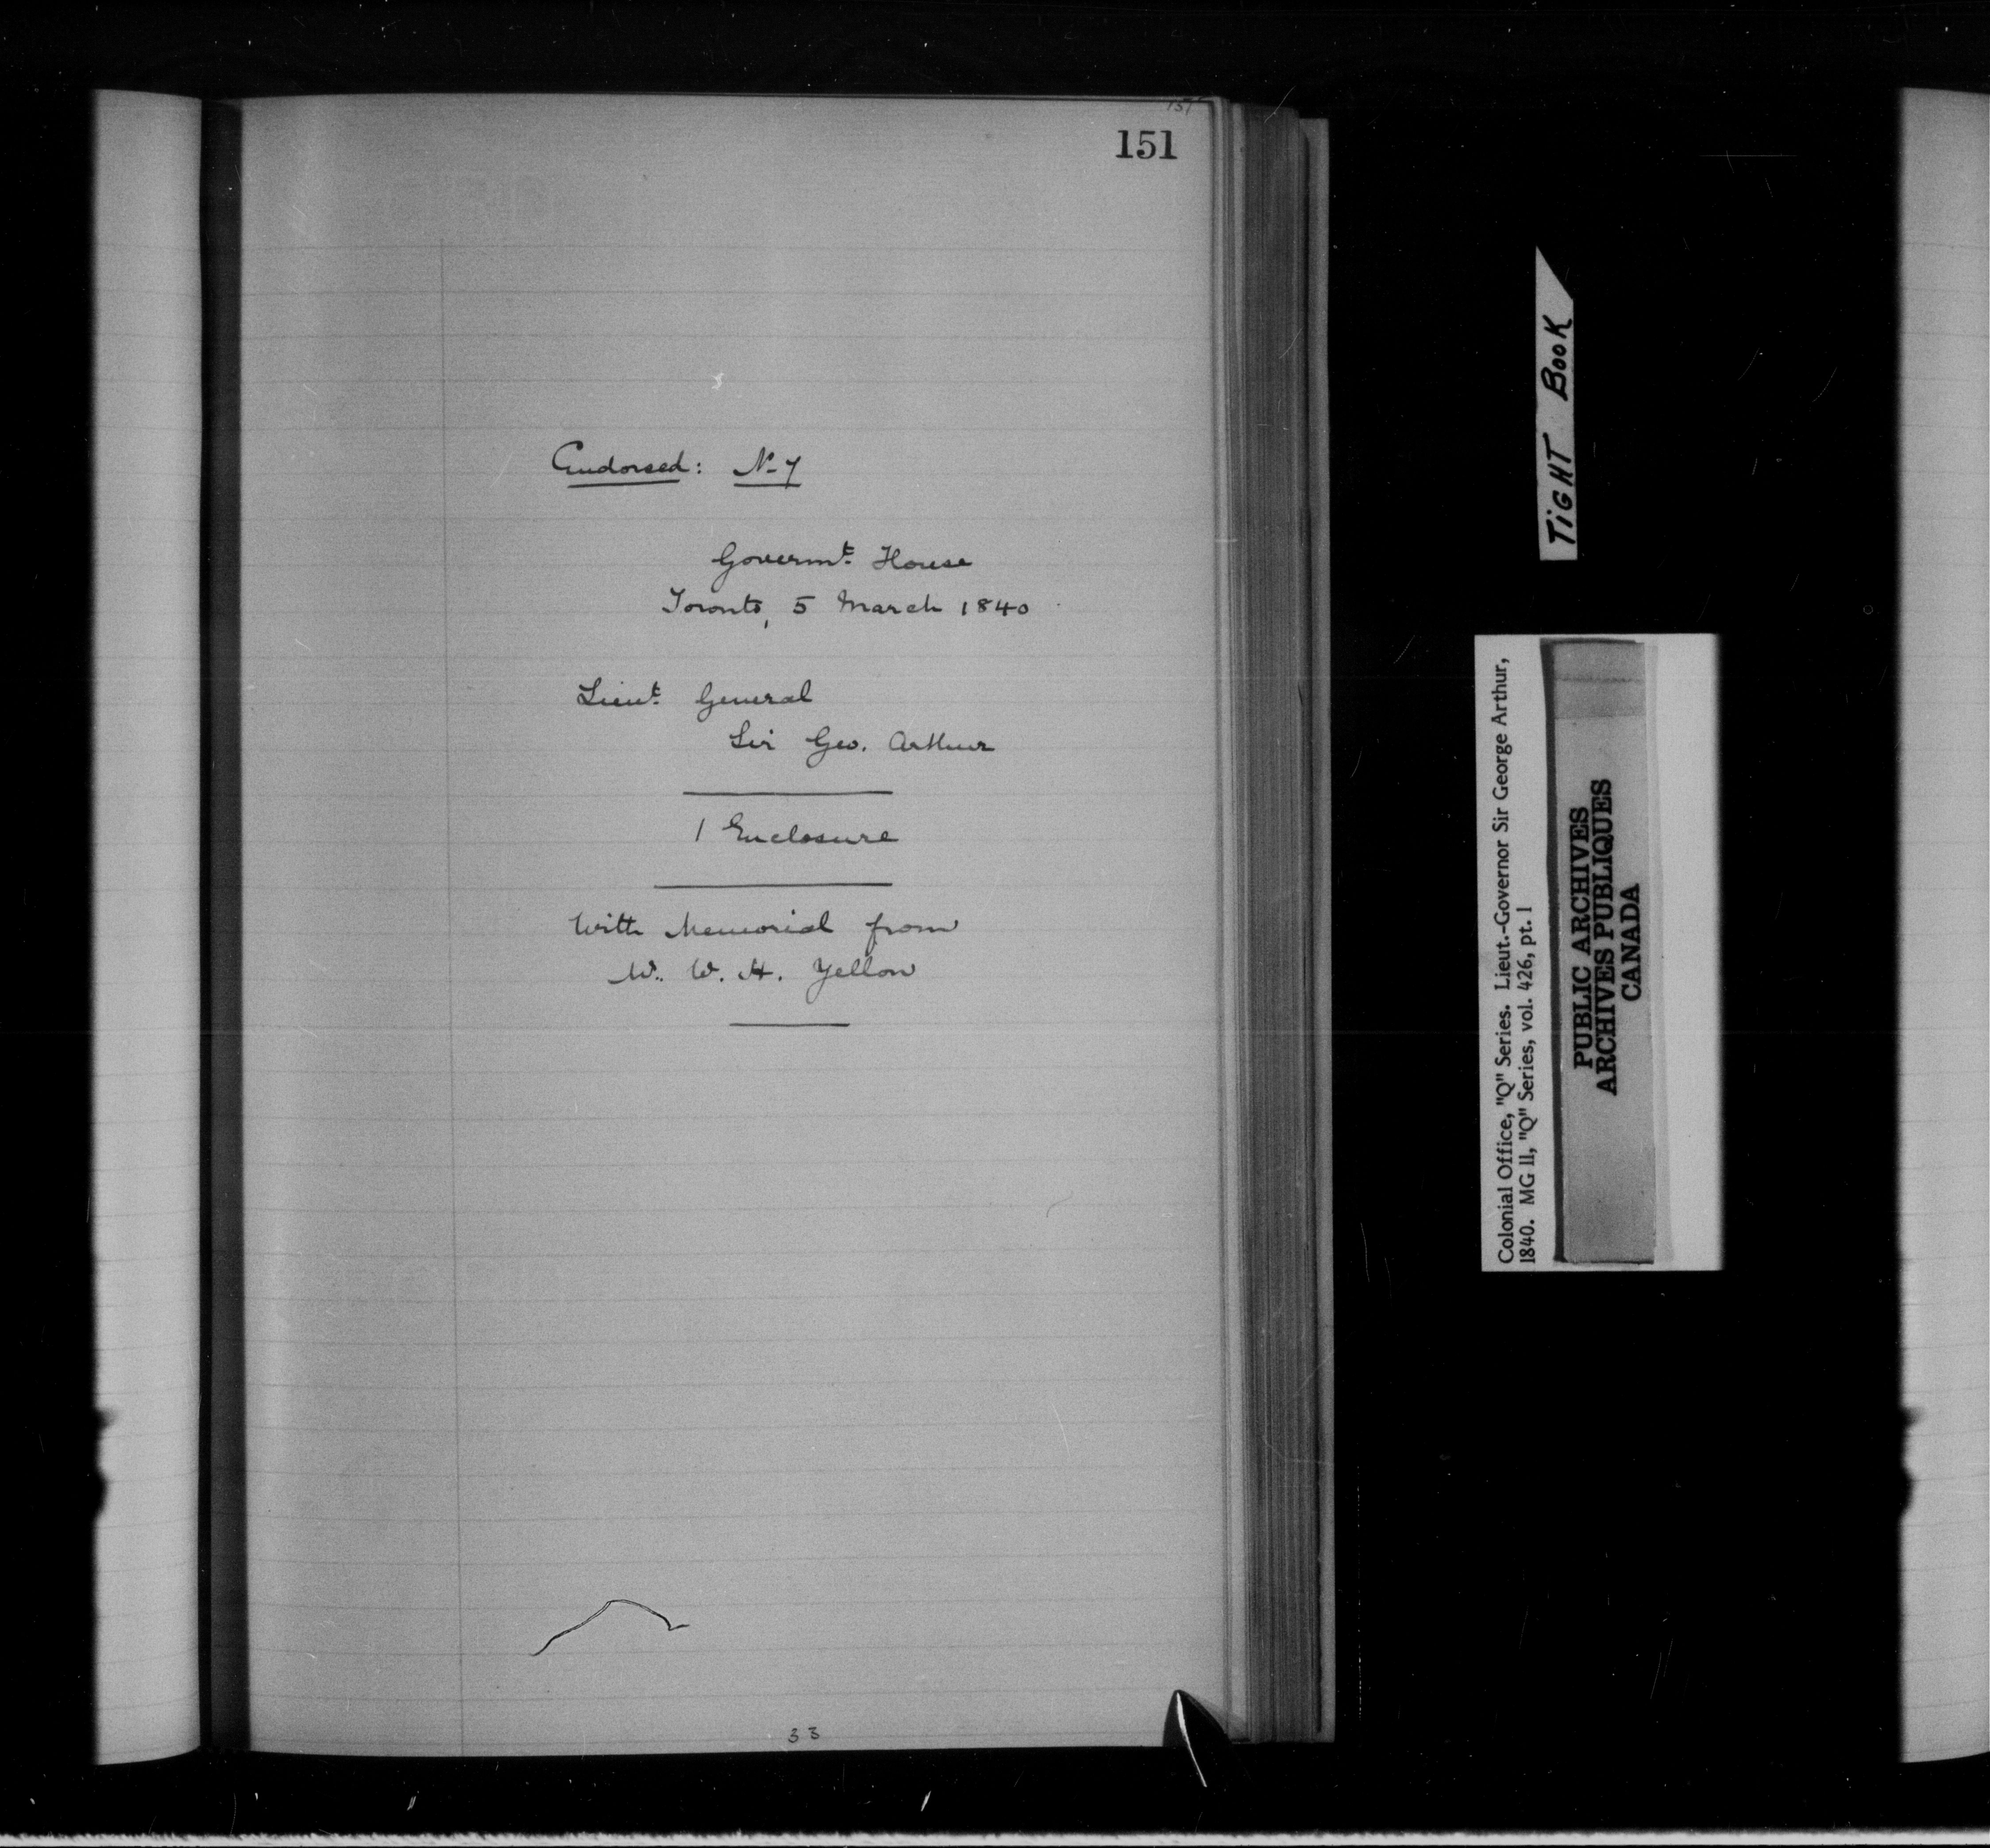 151
151
Endorsed: N-7
Governmt. House
Toronto, 5 March 1840
Lieut. General
Sir Geo. Arthur
1 Enclosure
With Memorial from
W. W. H. Yellow
33
TIGHT BOOK
Colonial Office, "Q" Series. Lieut.-Governor Sir George Arthur,
1840. MG 11, "Q" Series, vol. 426, pt. 1
PUBLIC ARCHIVES
ARCHIVES PUBLIQUES
CANADA